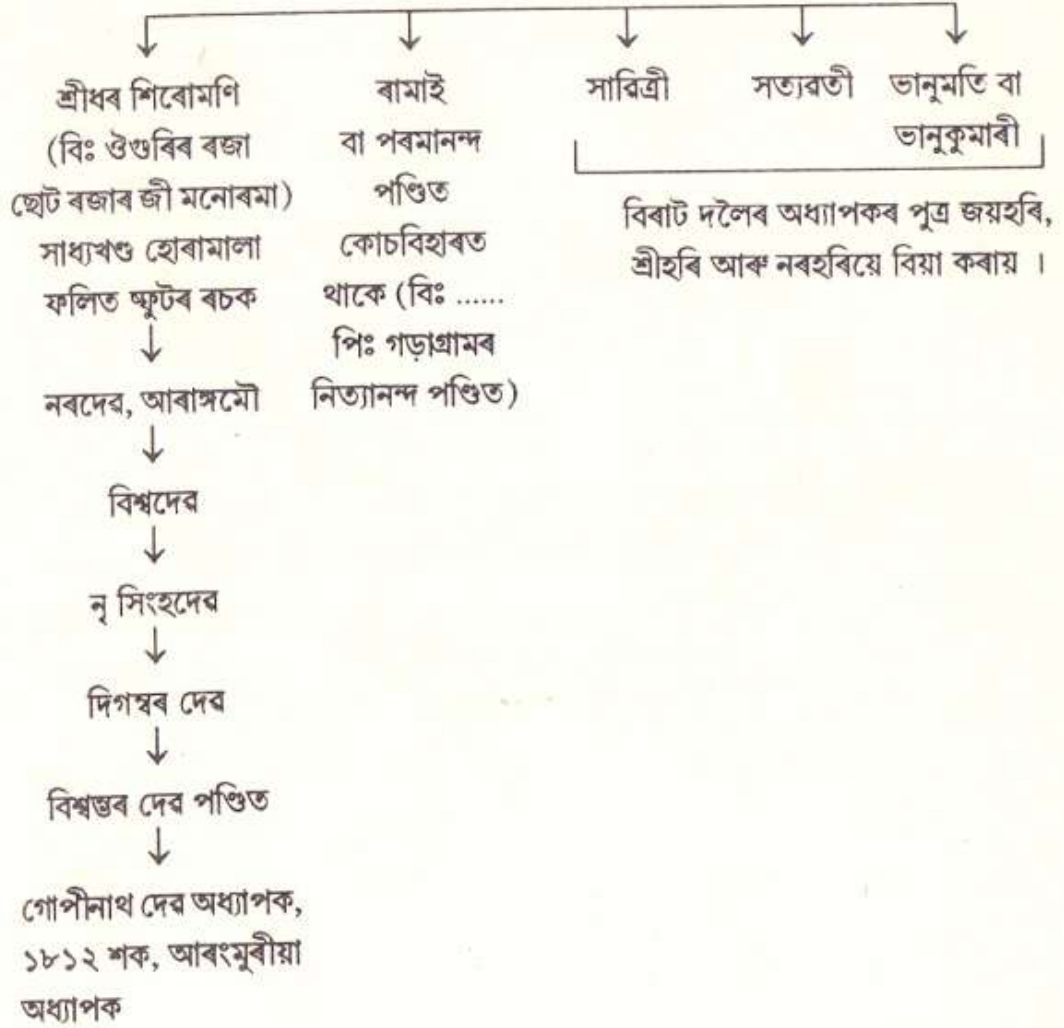 শ্ৰীধৰ শিৰোমণি
(বিঃ ঔগুৰিৰ ৰজা
ছোট ৰজাৰ জী মনোৰমা)
সাধ্যখণ্ড হোৰামালা
ফলিত স্ফুটৰ ৰচক
নৰদেৱ, আৰাঙ্গমৌ
বিশ্বদেৱ
নৃ সিংহদেৱ
দিগম্বৰ দেৱ
বিশ্বম্ভৰ দেৱ পণ্ডিত
গোপীনাথ দেৱ অধ্যাপক,
১৮১২ শক, আৰংমুৰীয়া
অধ্যাপক
ৰামাই
বা পৰমানন্দ
পণ্ডিত
কোচবিহাৰত
থাকে (বিঃ ......
পিঃ গড়াগ্ৰামৰ
নিত্যানন্দ পণ্ডিত)
সাৱিত্ৰী
সত্যৱতী
ভানুমতি বা
ভানুকুমাৰী
বিৰাট দলৈৰ অধ্যাপকৰ পুত্ৰ জয়হৰি,
শ্ৰীহৰি আৰু নৰহৰিয়ে বিয়া কৰায় ।